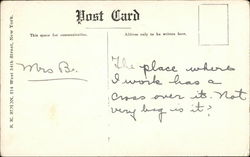 Post Card
This space for communication.
Address only to be written here.
Mrs B.
The place where
I work has a
cross over it. Not
very big is it?
West 14th Street, New York.